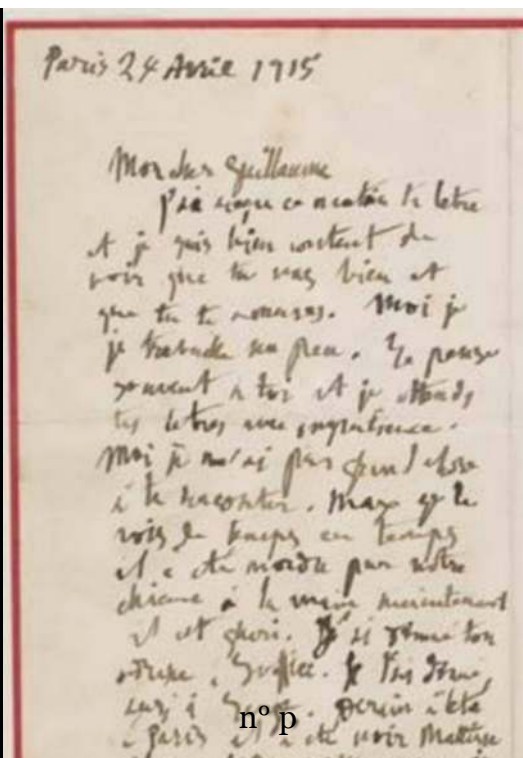 Paris 24 Avril 1915
Mon cher Guillaume
J'ai reçu ce matin ta letre
et je suis bien content de
voir que tu vas bien et
que tu te Moi je
je travaille un peu. Je pense
souvent a toi et je attends
tes letres avec impatience.
Moi je n'ai pas grand chose
a te raconter. Max que je
vois de temps en temps
il a été mordu par notre
chienne à la main maintenant
il et gueri. J'ai donné ton
adresse a Je l'ai donné
ausi à Derain a été
à Paris il a été voir Matisse
n° p